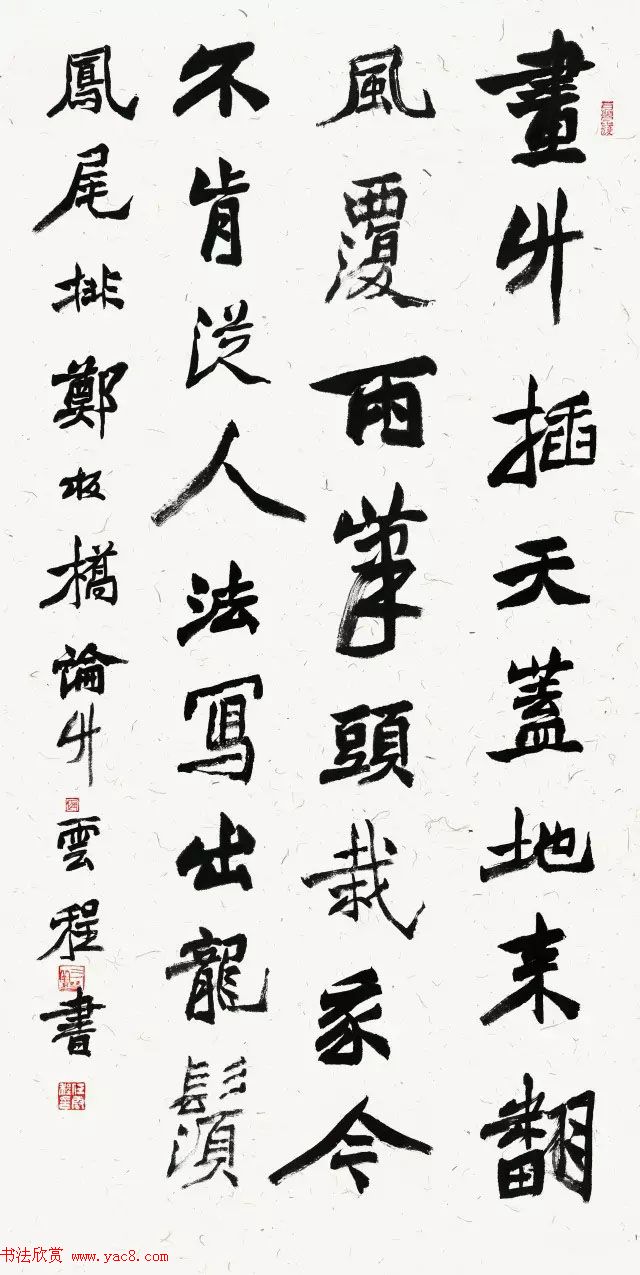 畫竹插天蓋地來翻
風覆雨筆頭栽我今
不肯從人法寫出龍鬚
鳳尾排鄭板橋論竹雲程書
书法欣赏 www.yac8.com